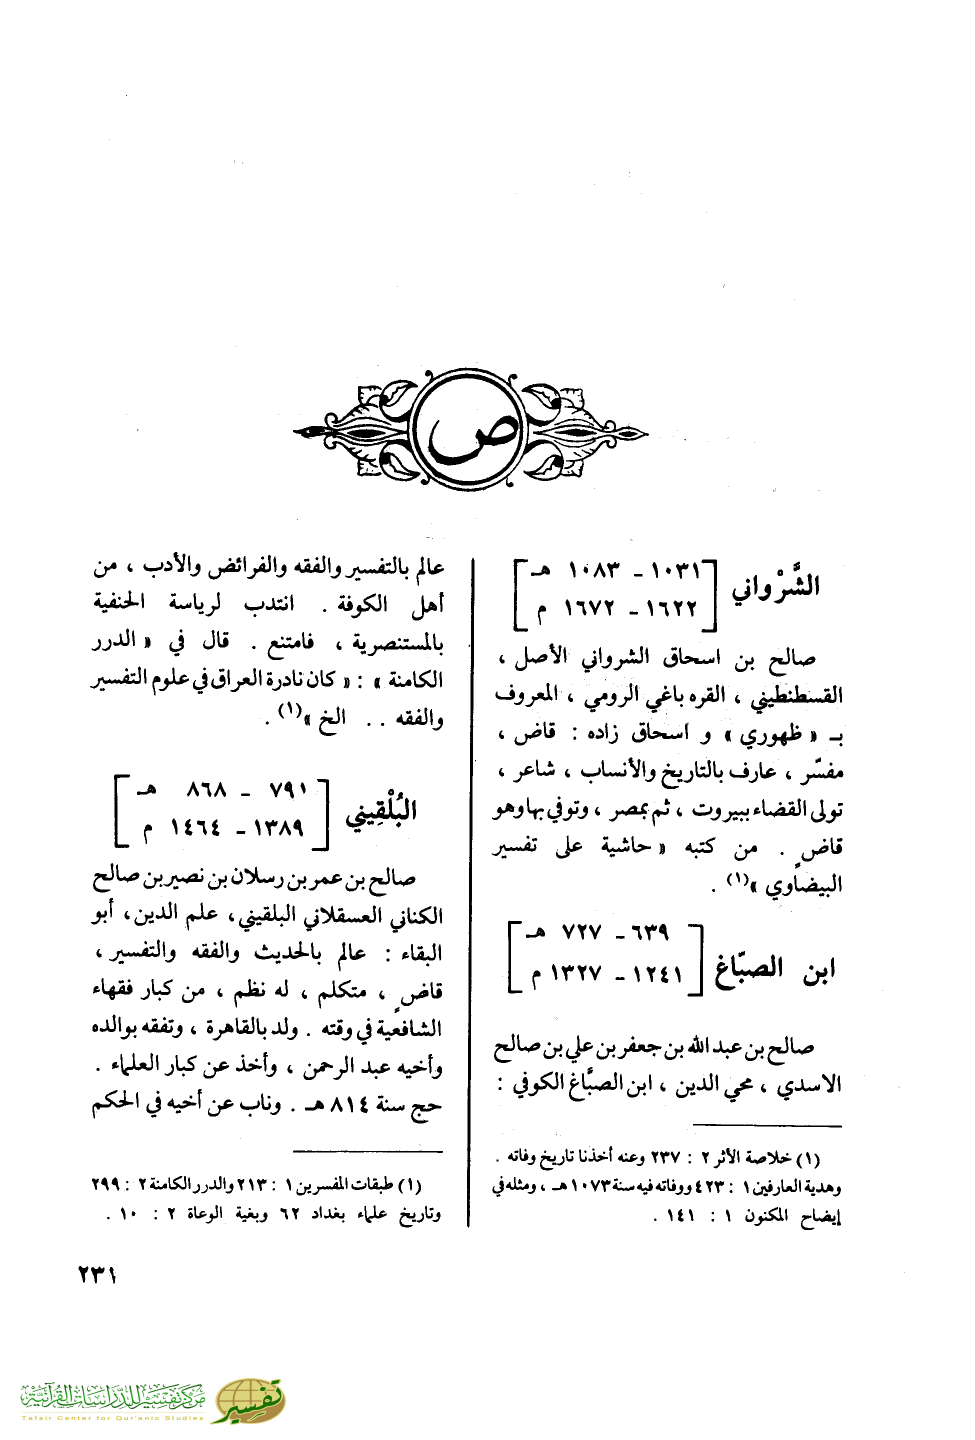 ص
الشَّرْواني [ ١٠٣١ - ١٠٨٣ هـ
١٦٢٢ - ١٦٧٢ م ]
صالح بن اسحاق الشرواني الأصل ،
القسطنطيني ، القره باغي الرومي ، المعروف
بـ « ظهوري » و اسحاق زاده : قاض ،
مفسّر ، عارف بالتاريخ والأنساب ، شاعر ،
تولى القضاء ببيروت ، ثم بمصر ، وتوفي بها وهو
قاضٍ . من كتبه « حاشية على تفسير
البيضاوي »(١) .
ابن الصبّاغ [ ٦٣٩ - ٧٢٧ هـ
١٢٤١ - ١٣٢٧ م ]
صالح بن عبد الله بن جعفر بن علي بن صالح
الاسدي ، محي الدين ، ابن الصبَّاغ الكوفي :
(١) خلاصة الأثر ٢ : ٢٣٧ وعنه أخذنا تاريخ وفاته .
وهدية العارفين ١ : ٤٢٣ ووفاته فيه سنة ١٠٧٣ هـ ، ومثله في
إيضاح المكنون ١ : ١٤١ .
عالم بالتفسير والفقه والفرائض والأدب ، من
أهل الكوفة . انتدب لرياسة الحنفية
بالمستنصرية ، فامتنع . قال في « الدرر
الكامنة » : « كان نادرة العراق في علوم التفسير
والفقه . . الخ »(١) .
البُلْقِيني [ ٧٩١ - ٨٦٨ هـ
١٣٨٩ - ١٤٦٤ م ]
صالح بن عمر بن رسلان بن نصير بن صالح
الكناني العسقلاني البلقيني ، علم الدين ، أبو
البقاء : عالم بالحديث والفقه والتفسير ،
قاضٍ ، متكلم ، له نظم ، من كبار فقهاء
الشافعية في وقته . ولد بالقاهرة ، وتفقه بوالده
وأخيه عبد الرحمن ، وأخذ عن كبار العلماء .
حج سنة ٨١٤ هـ . وناب عن أخيه في الحكم
(١) طبقات المفسرين ١ : ٢١٣ والدرر الكامنة ٢ : ٢٩٩
وتاريخ علماء بغداد ٦٢ وبغية الوعاة ٢ : ١٠ .
٢٣١
مركز تفسير للدراسات القرآنية
Tafsir Center for Qur'anic Studies
تفسير